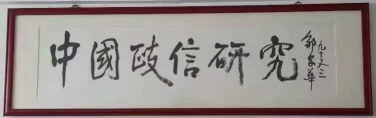 中國政信研究
邹家华
九十又三